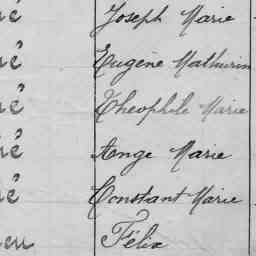 é Joseph Marie
é Eugène Mathurin
é Théophile Marie
é Ange Marie
é Constant Marie
eu Félix